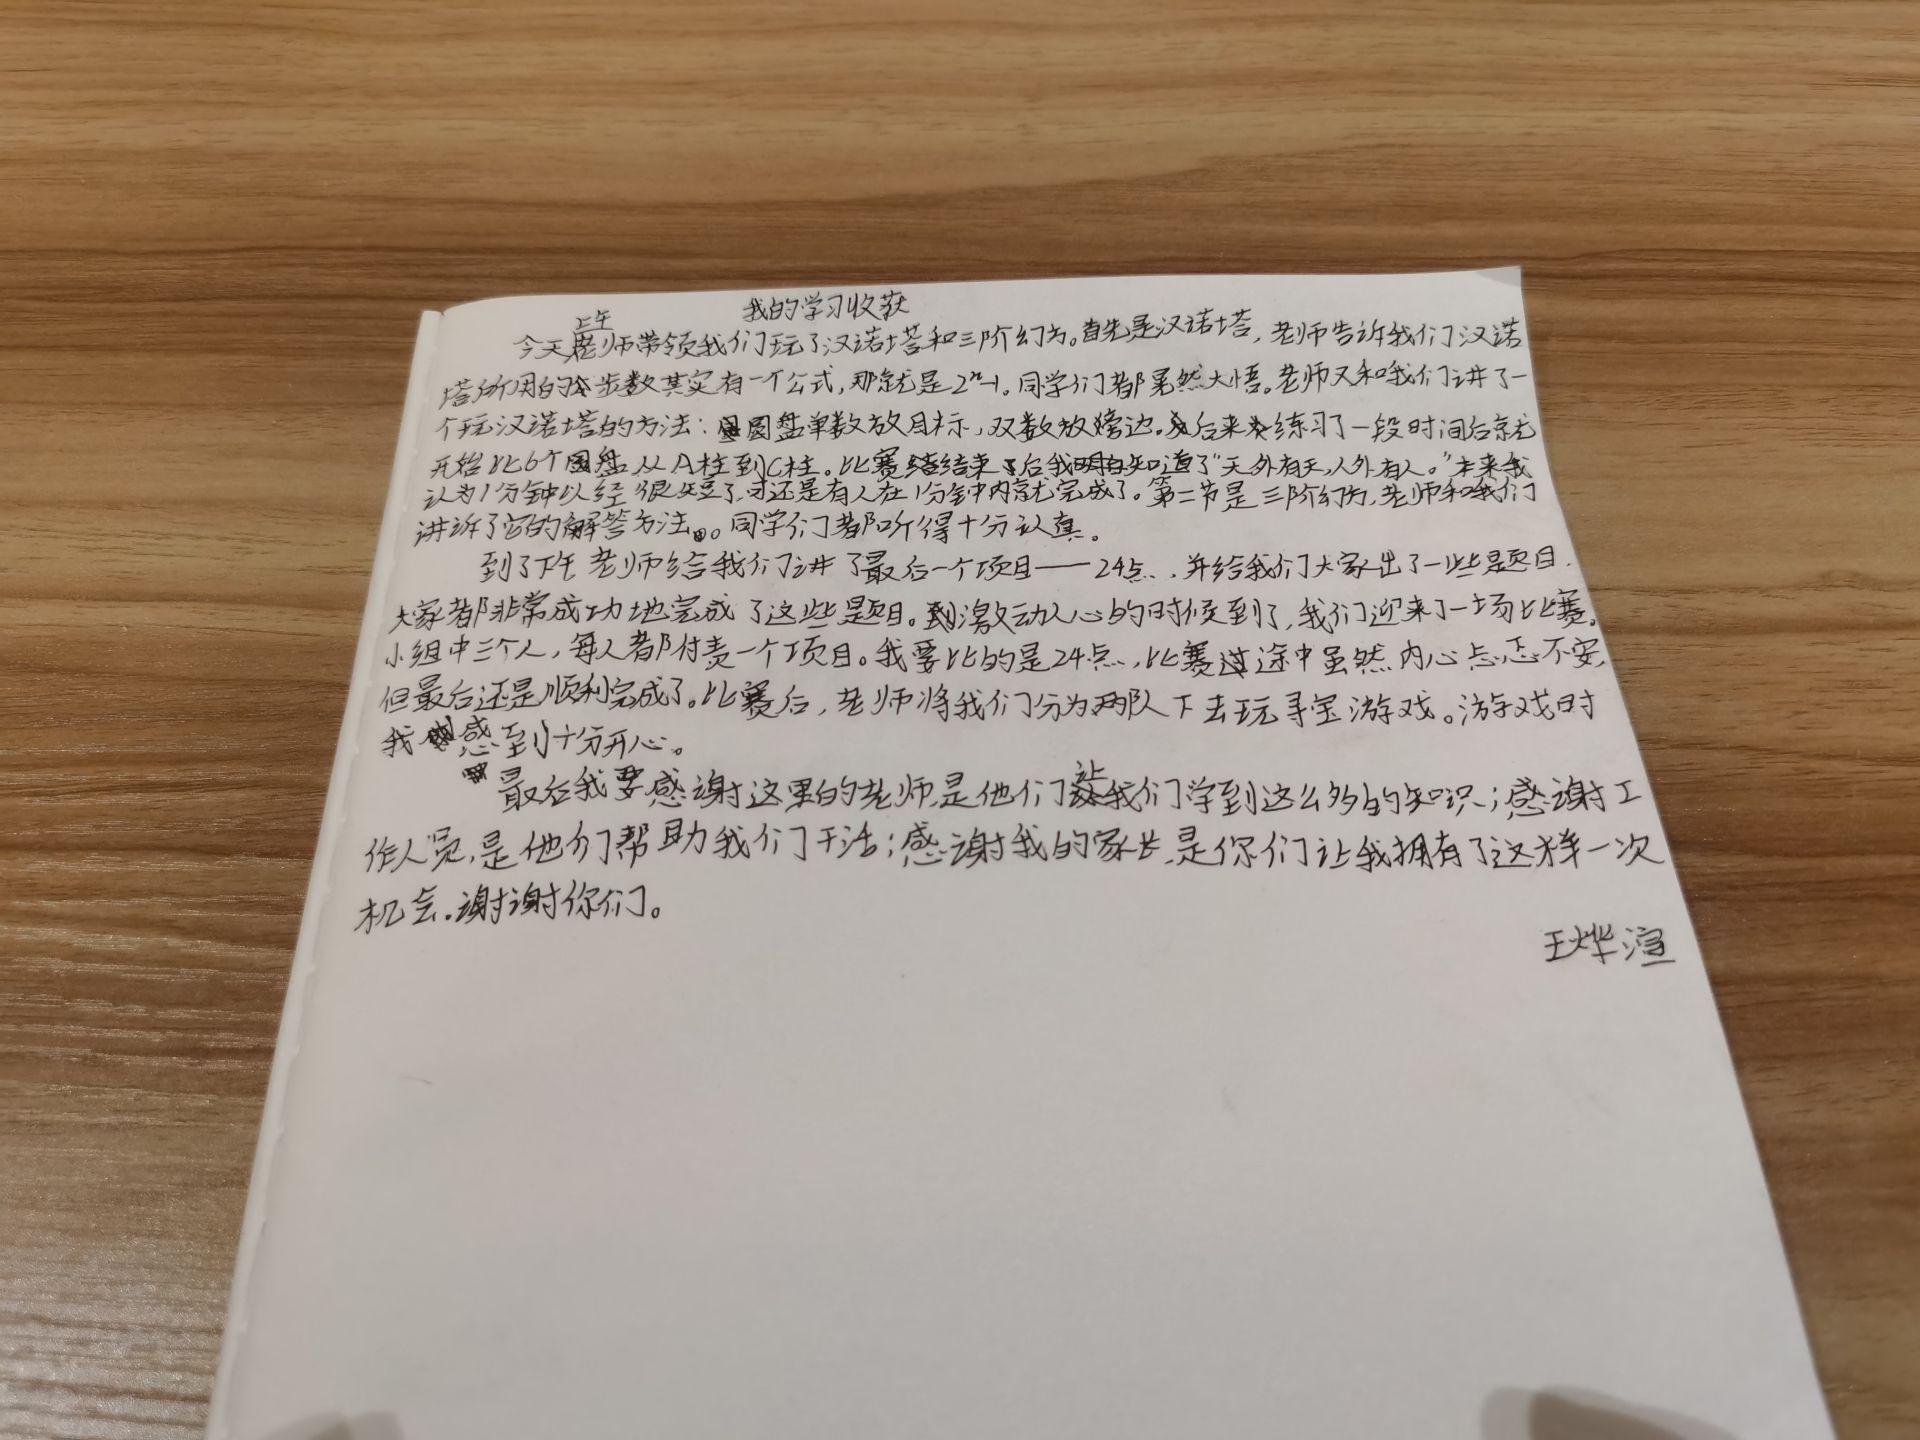 我的学习收获
今天上午老师带领我们玩了汉诺塔和三阶幻方。首先是汉诺塔，老师告诉我们汉诺
塔所用的步数其实有一个公式，那就是2ⁿ-1。同学们都晃然大悟。老师又和我们讲了一
个玩汉诺塔的方法：圆盘单数放目标，双数放旁边。后来练习了一段时间后就
开始比6个圆盘从A柱到C柱。比赛结束后我知道了“天外有天，人外有人。”本来我
认为1分钟以经很短了，可还是有人在1分钟内就完成了。第二节是三阶幻方，老师和我们
讲诉了它的解答方法。同学们都听得十分认真。
到了下午老师给我们讲了最后一个项目——24点，并给我们大家出了一些题目，
大家都非常成功地完成了这些题目。到激动人心的时候到了，我们迎来了一场比赛。
小组中三个人，每人都付责一个项目。我要比的是24点，比赛途中虽然内心忐忑不安，
但最后还是顺利完成了。比赛后，老师将我们分为两队下去玩寻宝游戏。游戏时
我感到十分开心。
最后我要感谢这里的老师，是他们让我们学到这么多的知识；感谢工
作人员，是他们帮助我们干活；感谢我的家长，是你们让我拥有了这样一次
机会。谢谢你们。
王烨渲